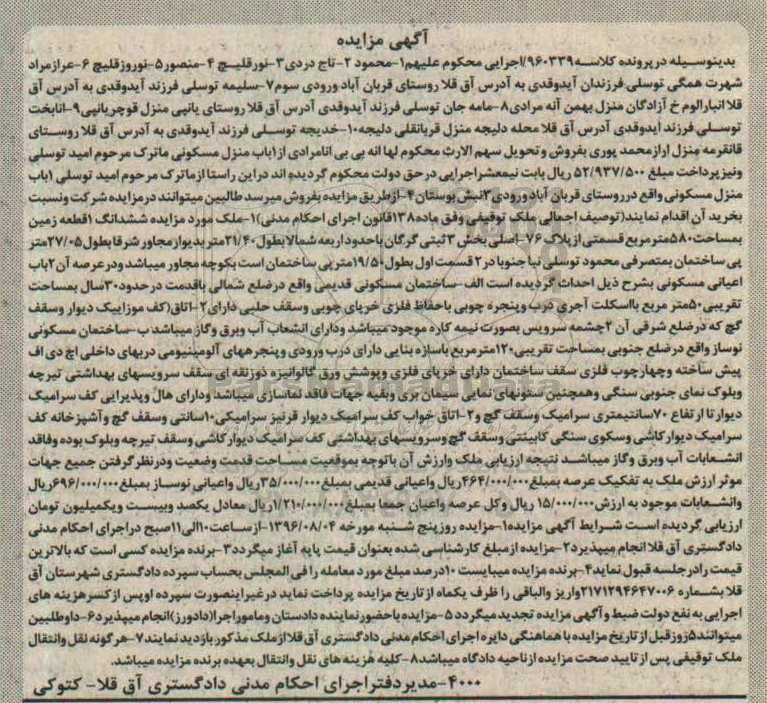 آگهی مزایده
بدینوسیله در پرونده کلاسه ۹۶۰۳۳۹/اجرایی محکوم علیهم۱-محمود ۲-تاج دردی۳-نورقلیچ ۴-منصور۵-نوروزقلیچ ۶-عرازمراد
شهرت همگی توسلی فرزندان آیدوقدی به آدرس آق قلا روستای قربان آباد ورودی سوم۷-سلیمه توسلی فرزند آیدوقدی به آدرس آق
قلا انبارالوم خ آزادگان منزل بهمن آنه مرادی۸-مامه جان توسلی فرزند آیدوقدی آدرس آق قلا روستای یانپی منزل قوچریانپی۹-انابخت
توسلی فرزند آیدوقدی آدرس آق قلا محله دلیجه منزل قربانقلی دلیجه۱۰-خدیجه توسلی فرزند آیدوقدی به آدرس آق قلا روستای
قانقرمه منزل ارازمحمد پوری بفروش وتحویل سهم الارث محکوم لها انه بی بی انامرادی از۱باب منزل مسکونی ماترک مرحوم امید توسلی
ونیزپرداخت مبلغ ۵۲/۹۳۷/۵۰۰ ریال بابت نیمعشراجرایی درحق دولت محکوم گردیده اند دراین راستا ازماترک مرحوم امید توسلی ۱باب
منزل مسکونی واقع درروستای قربان آباد ورودی۳نبش بوستان۴-ازطریق مزایده بفروش میرسد طالبین میتوانند درمزایده شرکت ونسبت
بخرید آن اقدام نمایند(توصیف اجمالی ملک توقیفی وفق ماده۱۳۸قانون اجرای احکام مدنی)۱-ملک مورد مزایده ششدانگ ۱قطعه زمین
بمساحت۵۸۰مترمربع قسمتی ازپلاک ۷۶-اصلی بخش ۳ ثبتی گرگان باحدود اربعه شمالا بطول۲۱/۴۰متر بدیوارمجاور شرقا بطول۲۷/۰۵متر
پی ساختمان بمتصرفی محمود توسلی نیا جنوبا در۲ قسمت اول بطول۱۹/۵۰مترپی ساختمان است بکوچه مجاور میباشد ودرعرصه آن۲باب
اعیانی مسکونی بشرح ذیل احداث گردیده است الف-ساختمان مسکونی قدیمی واقع درضلع شمالی باقدمت درحدود۳۰سال بمساحت
تقریبی۵۰متر مربع بااسکلت آجری درب وپنجره چوبی باحفاظ فلزی خرپای چوبی وسقف حلبی دارای۲-اتاق(کف موزاییک دیوار وسقف
گچ که درضلع شرقی آن ۲چشمه سرویس بصورت نیمه کاره موجود میباشد ودارای انشعاب آب وبرق وگاز میباشد ب-ساختمان مسکونی
نوساز واقع درضلع جنوبی بمساحت تقریبی۱۲۰مترمربع باسازه بنایی دارای درب ورودی وپنجرههای آلومینیومی دربهای داخلی اچ دی اف
پیش ساخته وچهارچوب فلزی سقف ساختمان دارای خرپای فلزی وپوشش ورق گالوانیزه ذوزنقه ای سقف سرویسهای بهداشتی تیرچه
وبلوک نمای جنوبی سنگی وهمچنین ستونهای نمایی سیمان بری وبقیه جهات فاقد نماسازی میباشد ودارای هال وپذیرایی کف سرامیک
دیوار تا ارتفاع ۷۰سانتیمتری سرامیک وسقف گچ و۲-اتاق خواب کف سرامیک دیوار قرنیز سرامیکی۱۰سانتی وسقف گچ وآشپزخانه کف
سرامیک دیوارکاشی وسکوی سنگی کابینتی وسقف گچ وسرویسهای بهداشتی کف سرامیک دیوارکاشی وسقف تیرچه وبلوک بوده وفاقد
انشعابات آب وبرق وگاز میباشد نتیجه ارزیابی ملک وارزش آن باتوجه بموقعیت مساحت قدمت وضعیت ودرنظرگرفتن جمیع جهات
موثر ارزش ملک به تفکیک عرصه بمبلغ۴۶۴/۰۰۰/۰۰۰ریال واعیانی قدیمی بمبلغ۳۵/۰۰۰/۰۰۰ریال واعیانی نوساز بمبلغ۶۹۶/۰۰۰/۰۰۰ریال
وانشعابات موجود به ارزش۱۵/۰۰۰/۰۰۰ ریال وکل عرصه واعیان جمعا بمبلغ۱/۲۱۰/۰۰۰/۰۰۰ریال معادل یکصد وبیست ویکمیلیون تومان
ارزیابی گردیده است شرایط آگهی مزایده۱-مزایده روزپنج شنبه مورخه ۱۳۹۶/۰۸/۰۴-ازساعت۱۰الی۱۱صبح دراجرای احکام مدنی
دادگستری آق قلا انجام میپذیرد۲-مزایده ازمبلغ کارشناسی شده بعنوان قیمت پایه آغاز میگردد۳-برنده مزایده کسی است که بالاترین
قیمت رادرجلسه قبول نماید۴-برنده مزایده میبایست ۱۰درصد مبلغ مورد معامله را فی المجلس بحساب سپرده دادگستری شهرستان آق
قلا بشماره ۲۱۷۱۲۹۴۶۴۷۰۰۶واریز والباقی را ظرف یکماه از تاریخ مزایده پرداخت نماید درغیراینصورت سپرده اوپس ازکسرهزینه های
اجرایی به نفع دولت ضبط وآگهی مزایده تجدید میگردد ۵-مزایده باحضورنماینده دادستان ومامور اجرا(دادورز)انجام میپذیرد۶-داوطلبین
میتوانند۵روزقبل از تاریخ مزایده با هماهنگی دایره اجرای احکام مدنی دادگستری آق قلا ازملک مذکور بازدید نمایند۷-هرگونه نقل وانتقال
ملک توقیفی پس از تایید صحت مزایده ازناحیه دادگاه میباشد۸-کلیه هزینه های نقل وانتقال بعهده برنده مزایده میباشد.
۴۰۰۰-مدیردفتراجرای احکام مدنی دادگستری آق قلا- کتوکی